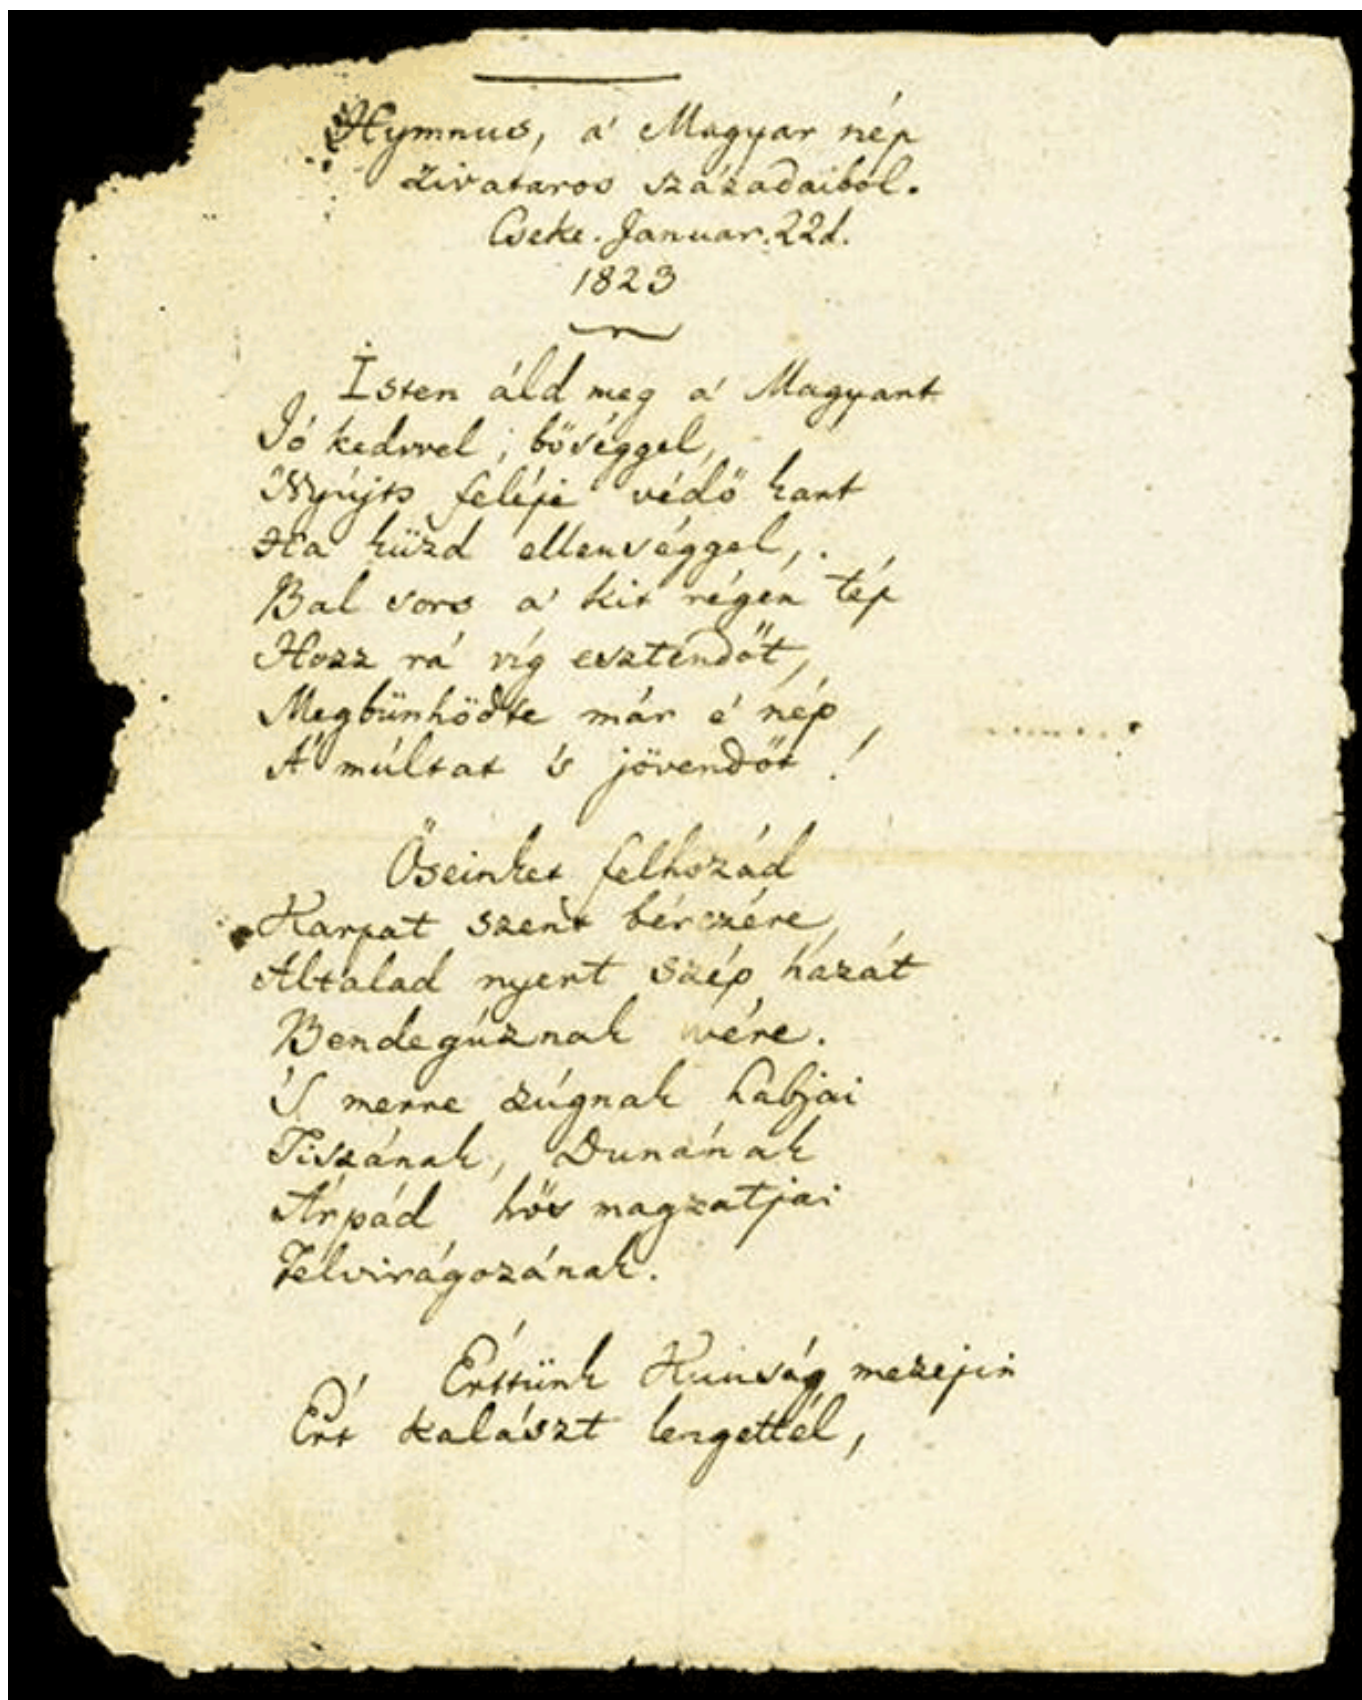 Hymnus, a' Magyar nép
zivataros századaiból.
Cseke. Januar. 22d.
1823
Isten áld meg a' Magyart
Jó kedvvel, bőséggel,
Nyújts feléje védő kart
Ha küzd ellenséggel,
Bal sors a' kit régen tép
Hozz rá víg esztendőt,
Megbünhödte már e' nép
A' múltat 's jövendőt!
Őseinket felhozád
Karpat szent bérczére
Altalad nyert szép hazát
Bendegúznak vére.
'S merre zúgnak habjai
Tiszának, Dunának
Árpád hős magzatjai
Felvirágozának.
Érttünk Kunság mezejin
Ért kalászt lengettél,